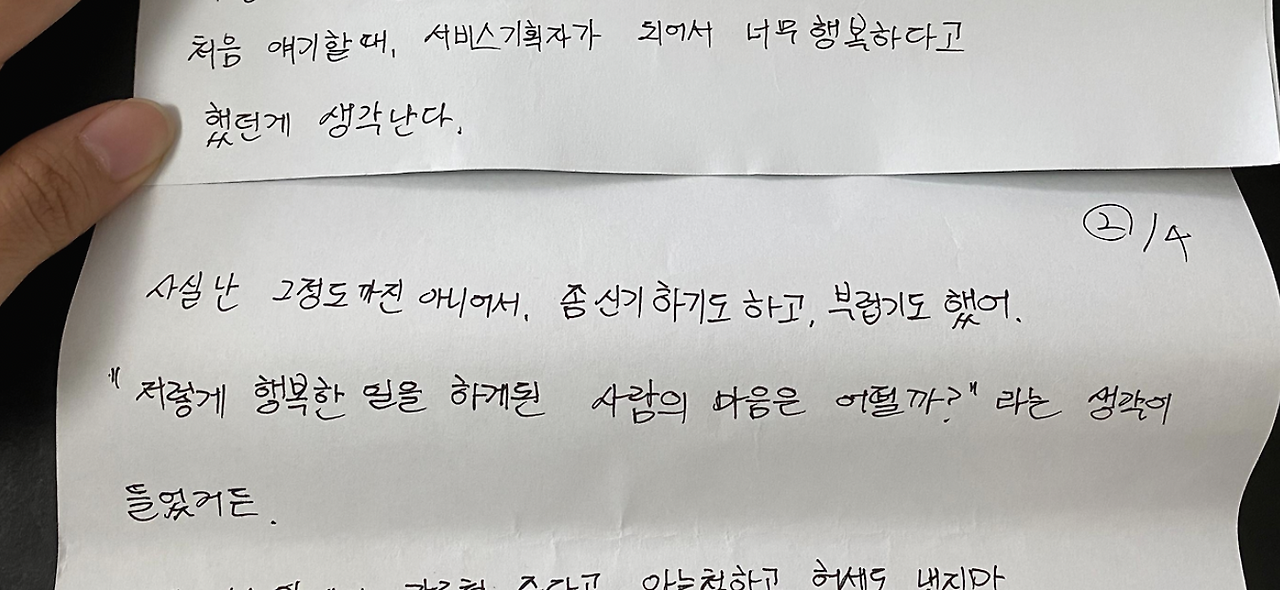 처음 얘기할 때, 서비스기획자가 되어서 너무 행복하다고
했던게 생각난다.
②/4
사실 난 그정도까진 아니어서, 좀 신기하기도 하고, 부럽기도 했어.
"저렇게 행복한 일을 하게된 사람의 마음은 어떨까?" 라는 생각이
들었거든.
준다고 아는척하고 허세도